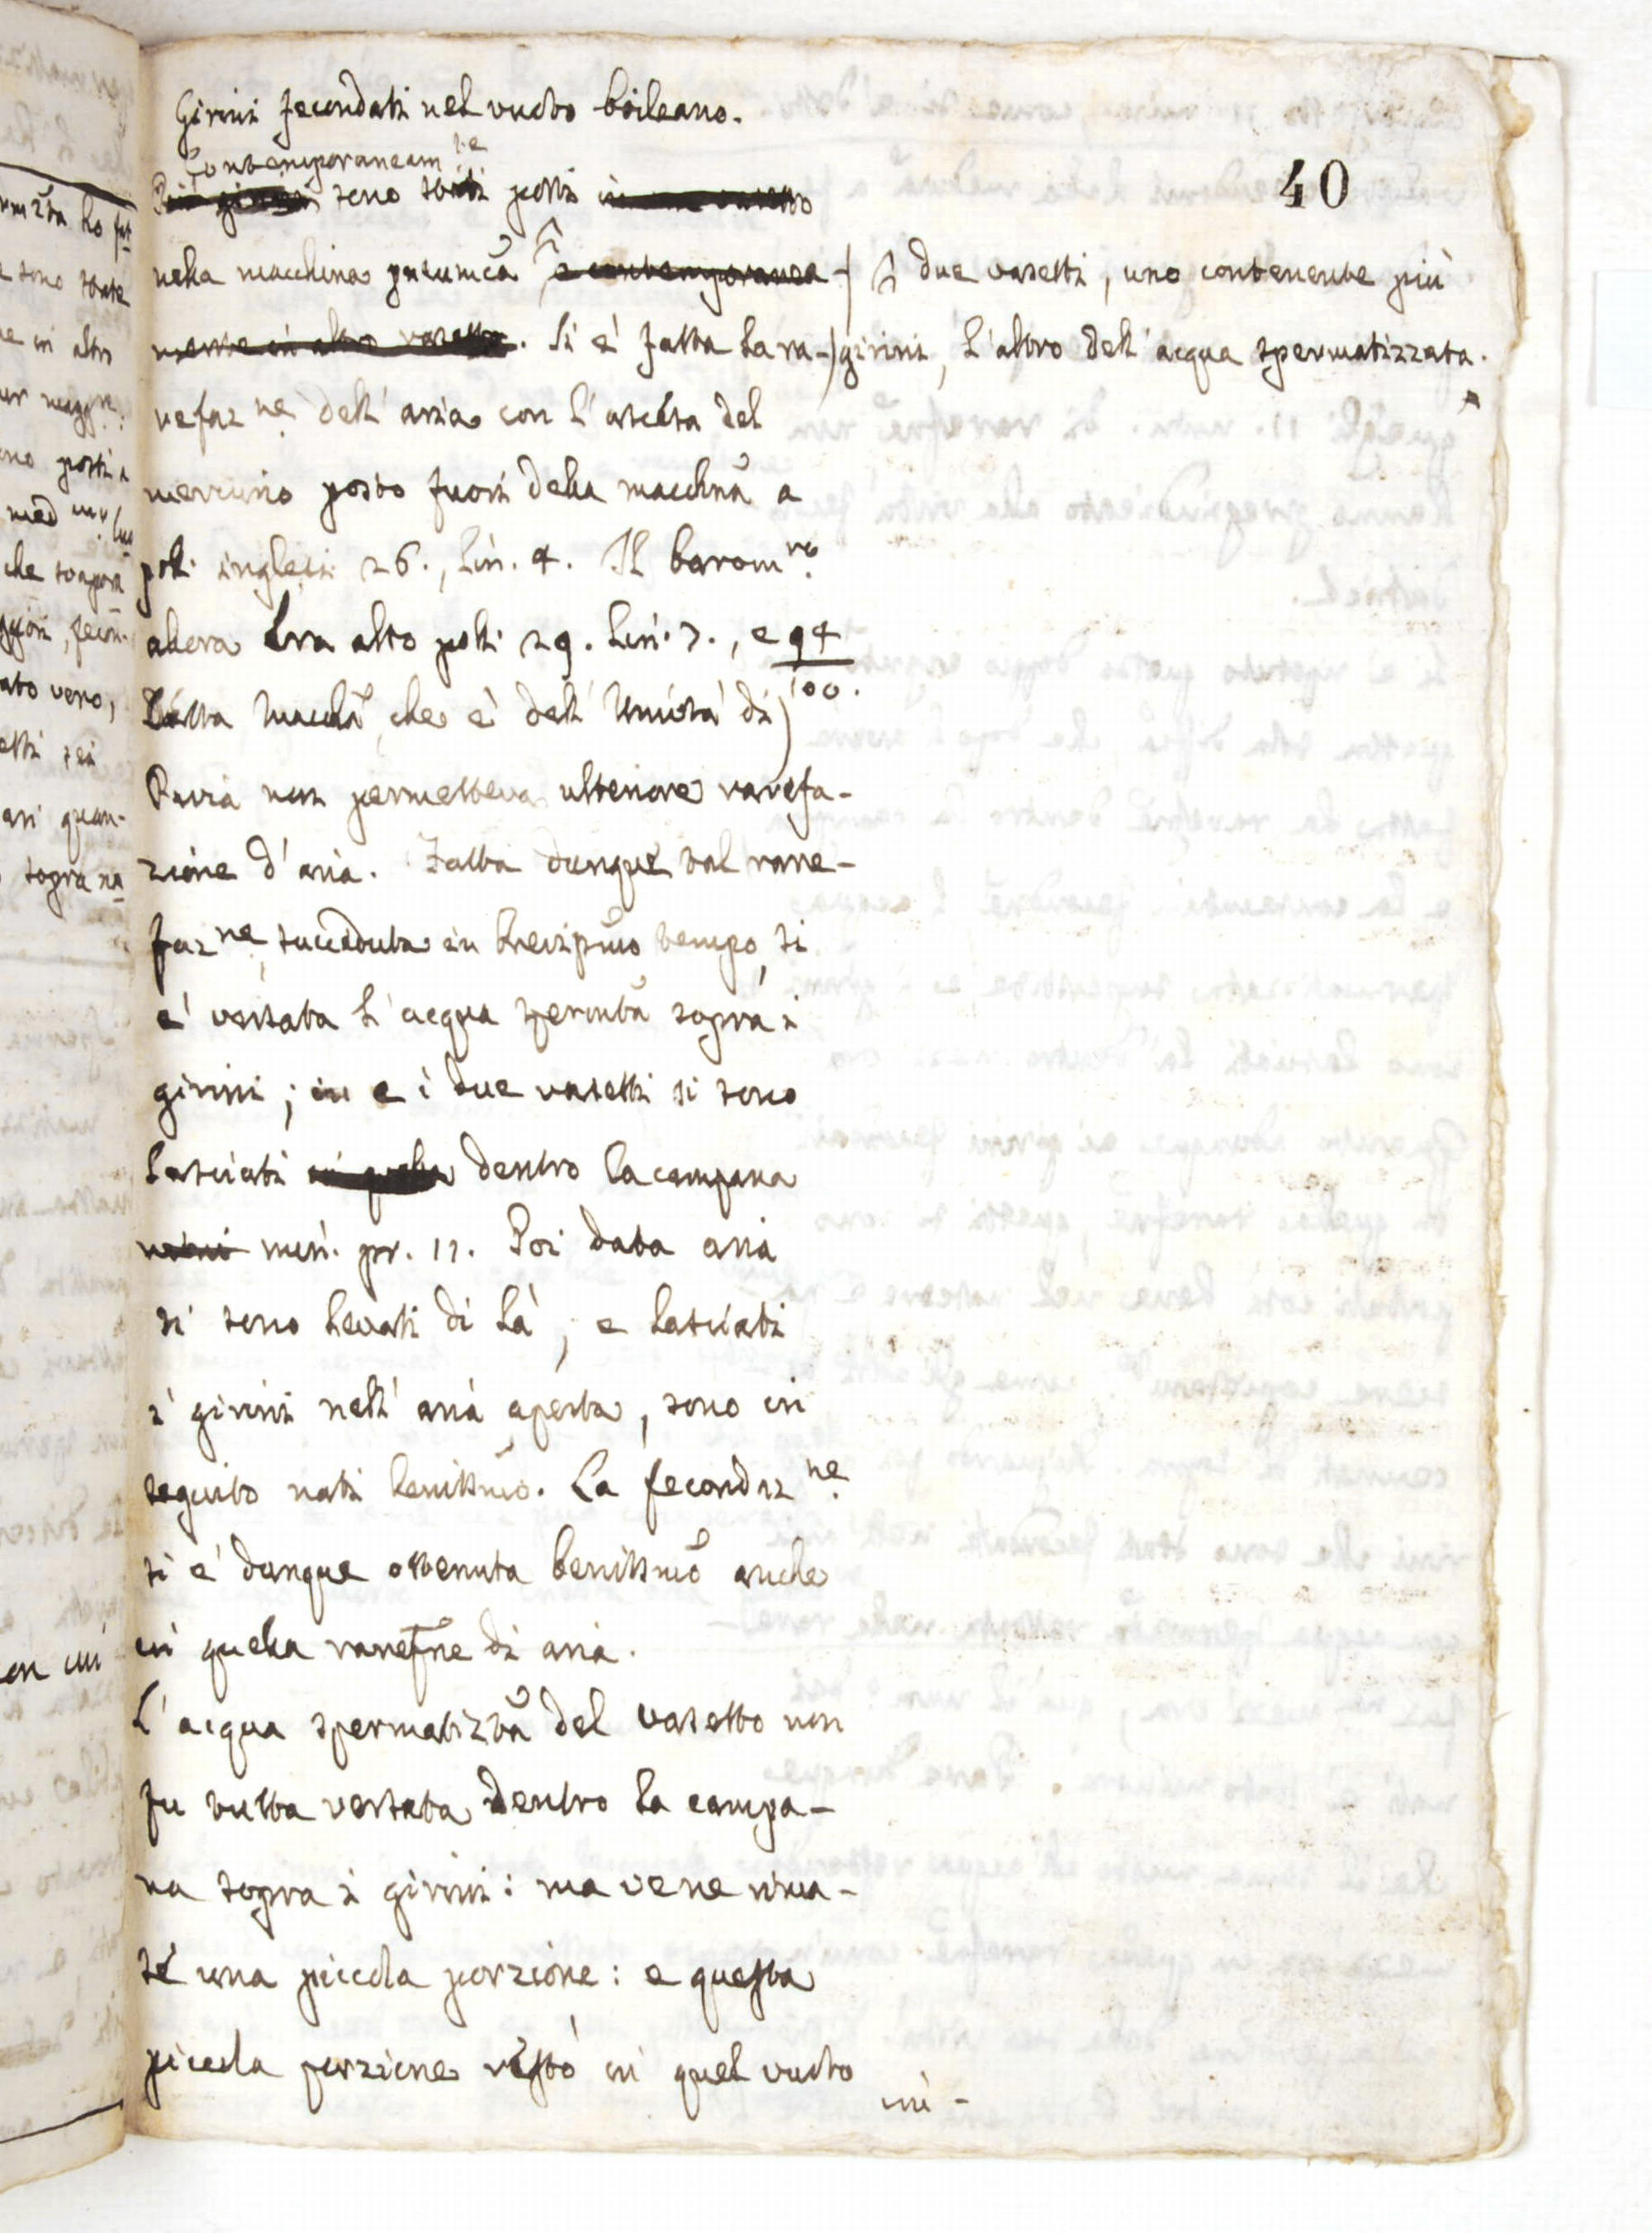 40
Girini fecondati nel vuoto boileano.
Contemporaneam.te
Più girini sono stati posti in un vasetto
nella macchina pneumca, e contemporanea- ^ due vasetti, uno contenente più
mente in altro vasetto. Si è fatta la ra- girini, l'altro dell'acqua spermatizzata.
refaz.ne dell'aria con l'ascesa del
mercurio posto fuori della macchina a
poll. inglesi 26., lin. 4. Il barom.ro
allora era alto poll. 29. lin. 7., e 94/100.
Detta macchã, che è dell'Univtà di
Pavia non permetteva ulteriore rarefa-
zione d'aria. Fatta dunque tal rare-
faz.ne, succeduta in brevissmo tempo, si
è versata l'acqua spermta sopra i
girini; in e i due vasetti si sono
lasciati in quella dentro la campana
min. pr. 11. Poi data aria
si sono levati di là, e lasciati
i girini nell'aria aperta, sono in
seguito nati benissmo. La fecondaz.ne
si è dunque ottenuta benissmo anche
in quella rarefne di aria.
L'acqua spermatizta del vasetto non
fu tutta versata dentro la campa-
na sopra i girini: ma vene rima-
se una piccola porzione: e questa
piccola porzione restò in quel vuoto
mi-